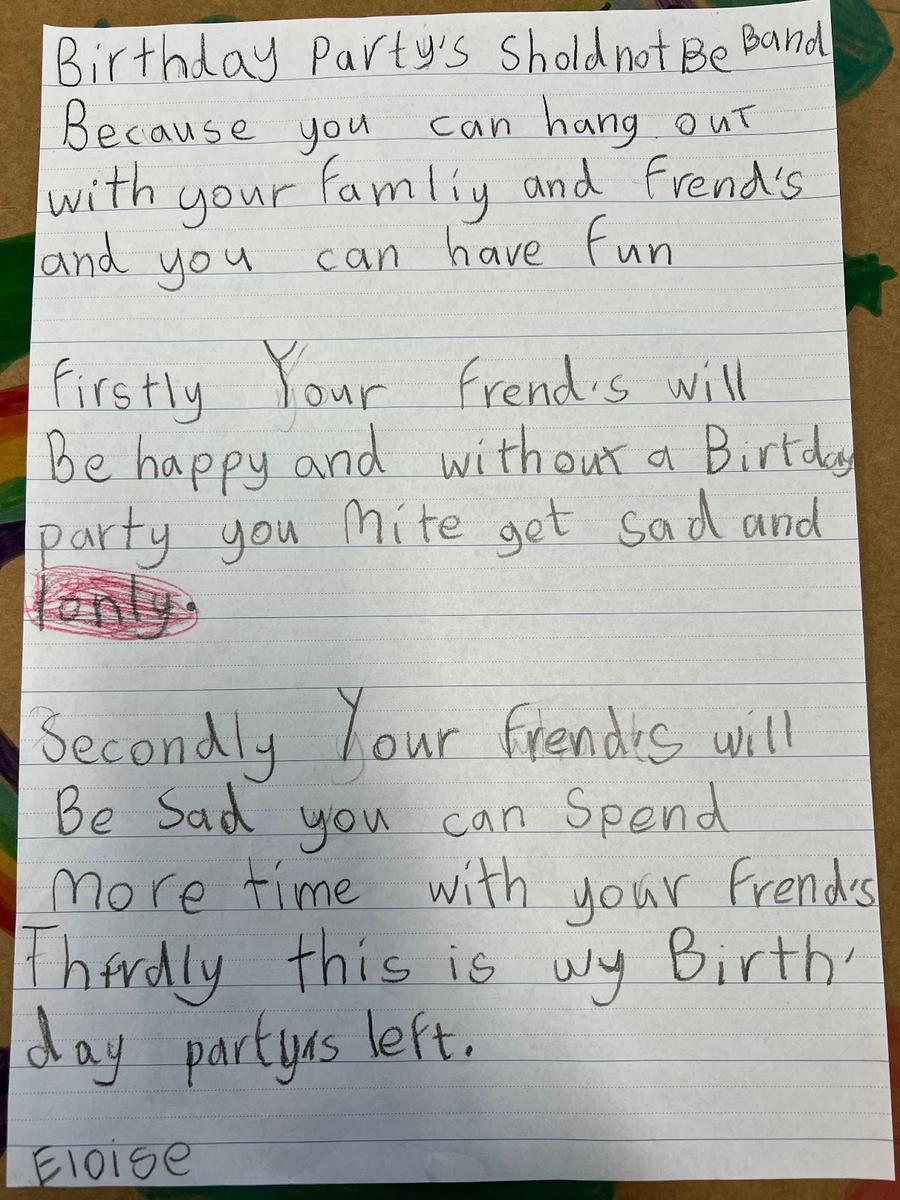 Birthday Party's Shold not Be Band
Because you can hang out
with your famliy and frend's
and you can have fun
firstly Your frend's will
Be happy and without a Birtday
party you Mite get sad and
lonly.
Secondly Your frend's will
Be Sad you can Spend
More time with your frend's
Thirdly this is wy Birth'
day party's left.
Eloise